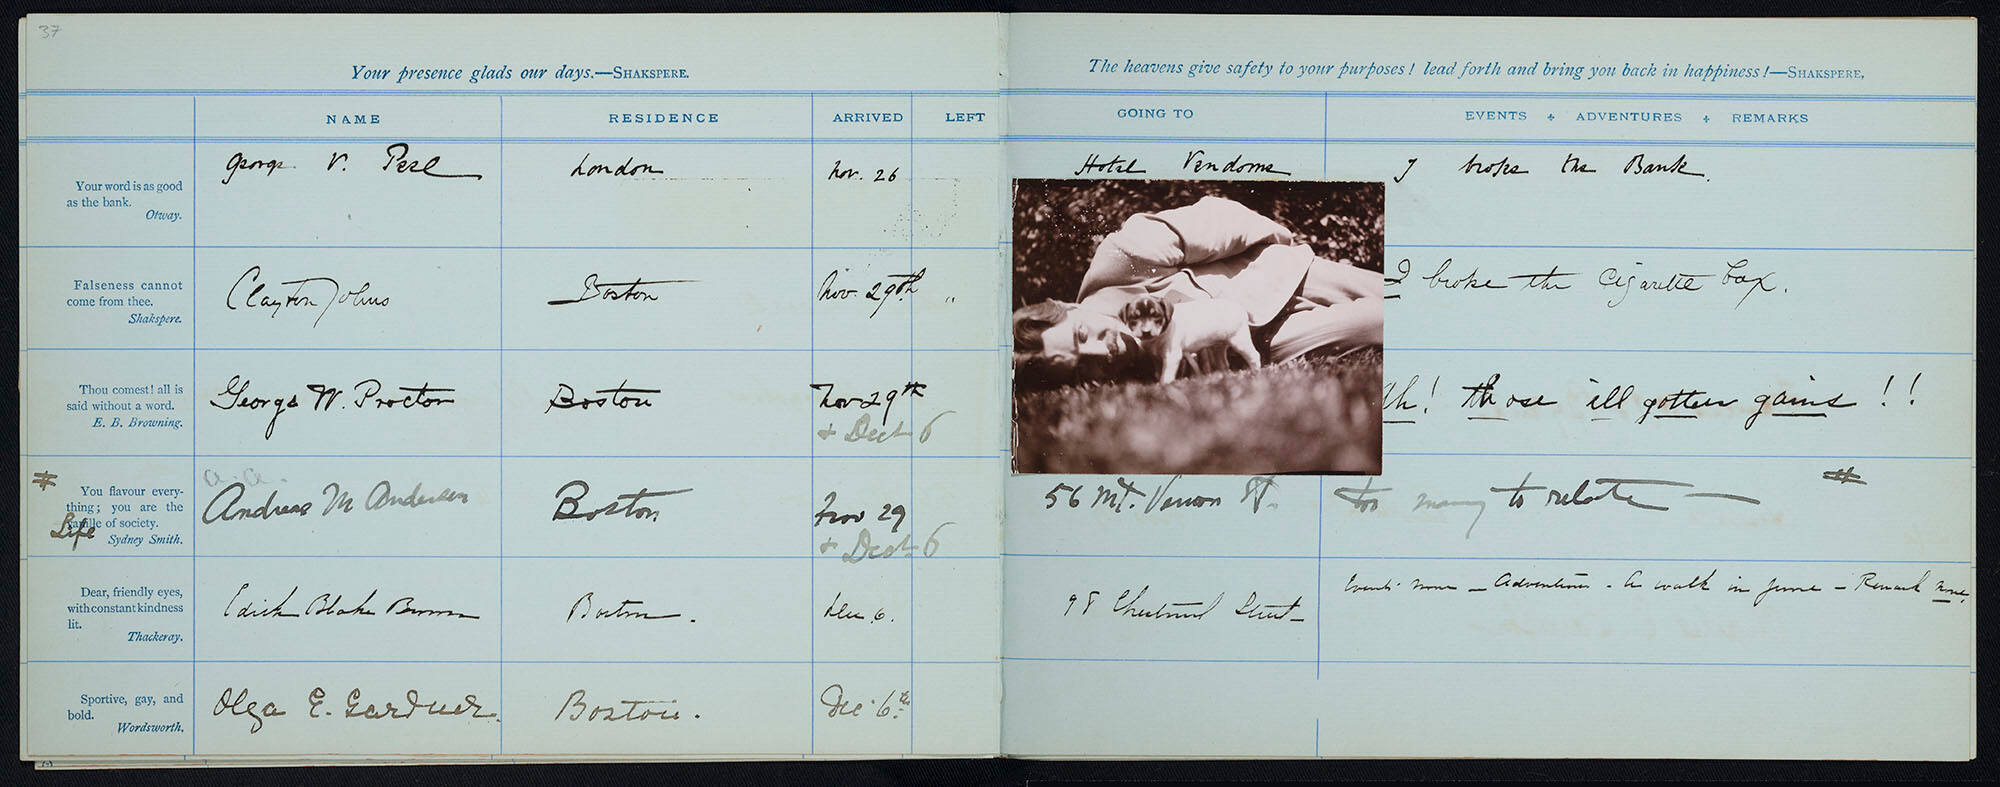 37
Your presence glads our days.—SHAKSPERE.
The heavens give safety to your purposes! lead forth and bring you back in happiness!—SHAKSPERE,
NAME RESIDENCE ARRIVED LEFT GOING TO EVENTS + ADVENTURES + REMARKS
Your word is as good
as the bank.
Otway.
George V. Peel London Nov. 26 Hotel Vendome I broke the Bank.
Falseness cannot
come from thee.
Shakspere.
Clayton Johns Boston Nov. 29th " I broke the cigarette box.
Thou comest! all is
said without a word.
E. B. Browning.
George W. Proctor Boston Nov 29th
+ Dect 6
Oh! those ill gotten gains!!
You flavour every-
thing; you are the
vanille of society.
Sydney Smith.
# Life
a. a.
Andreas M Andersen Boston Nov 29
+ Dect 6
56 Mt. Vernon St. too many to relate — #
Dear, friendly eyes,
with constant kindness
lit.
Thackeray.
Edith Blake Boston. Dec. 6. 98 Chestnut Street— Events none — Adventures - A walk in June — Remark none.
Sportive, gay, and
bold.
Wordsworth.
Olga E. Gardner. Boston. Dec. 6th